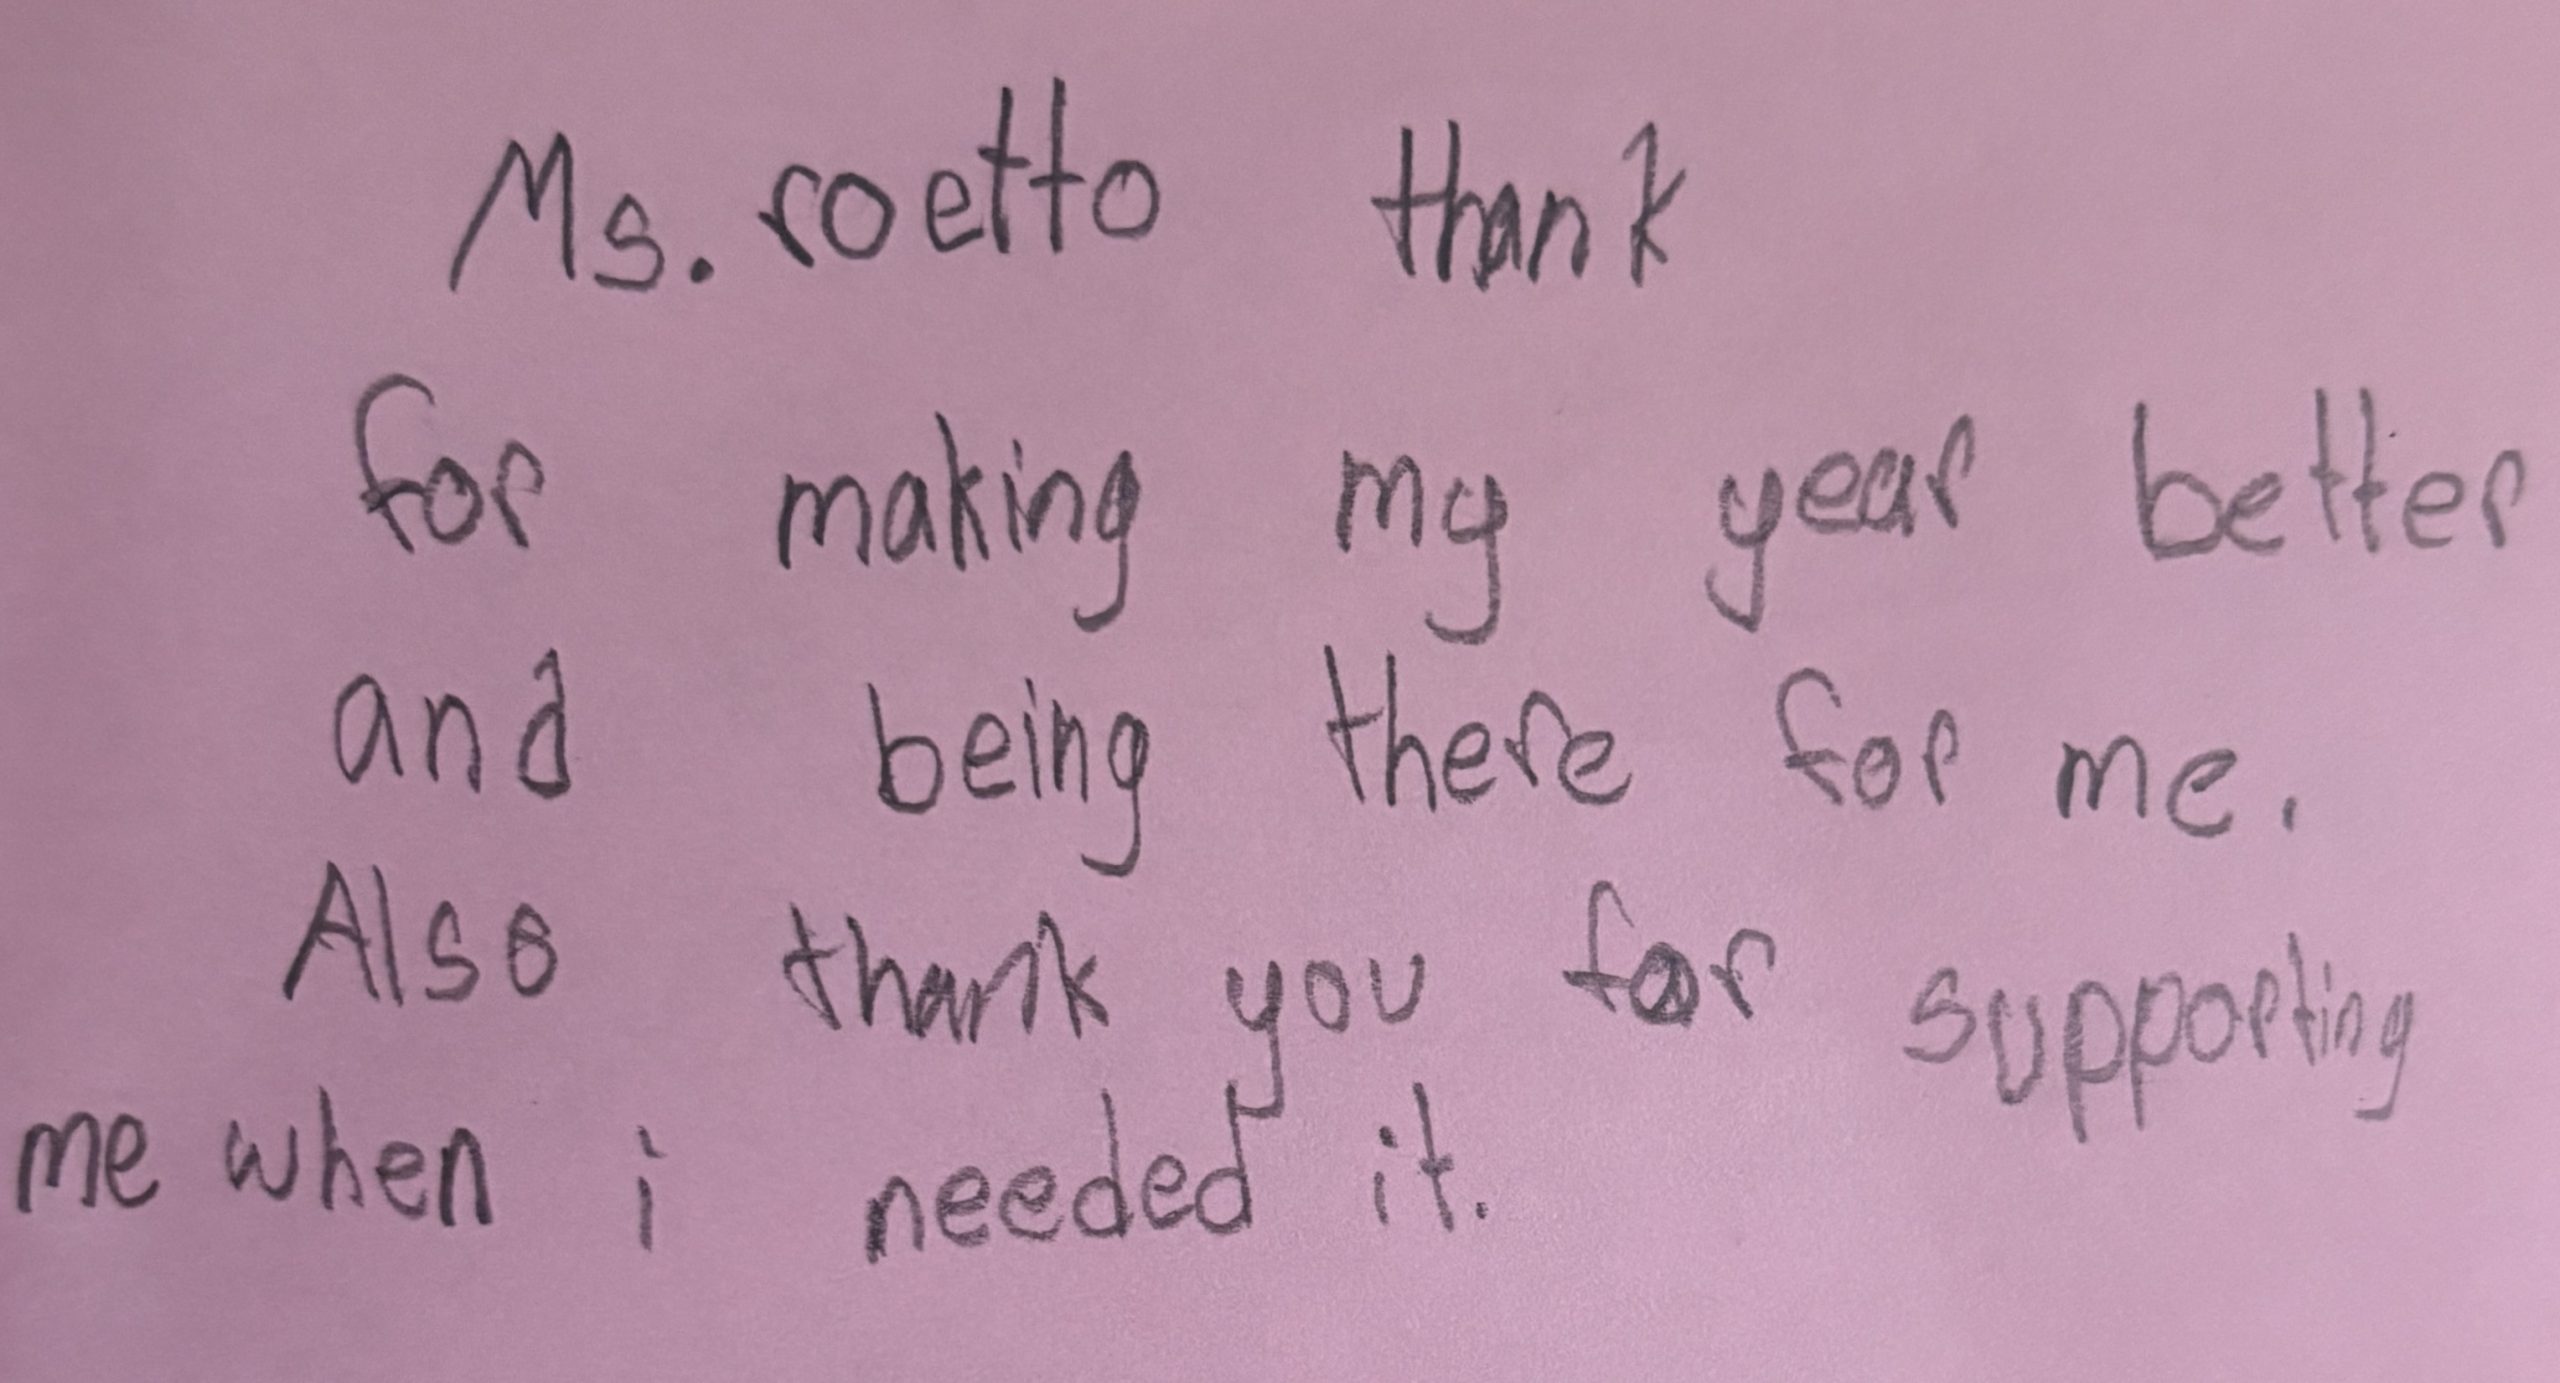 Ms. roetto thank
for making my year better
and being there for me.
Also thank you for supporting
me when i needed it.